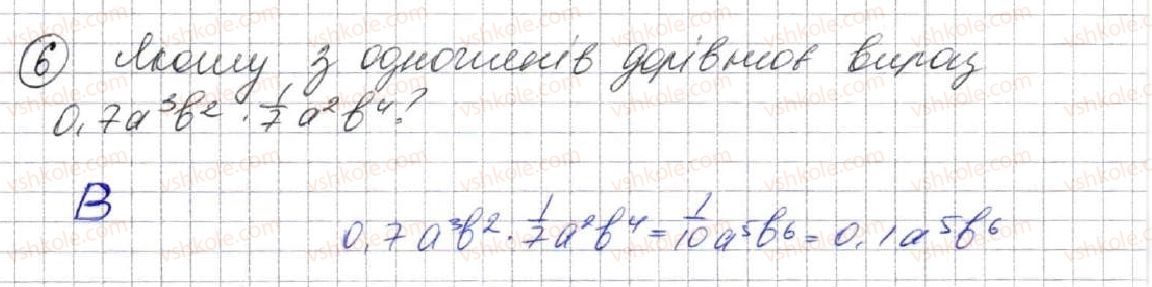 6 Якому з одночленів дорівнює вираз
0,7a³b² · 1/7 a²b⁴?
В
0,7a³b² · 1/7 a²b⁴ = 1/10 a⁵b⁶ = 0,1a⁵b⁶